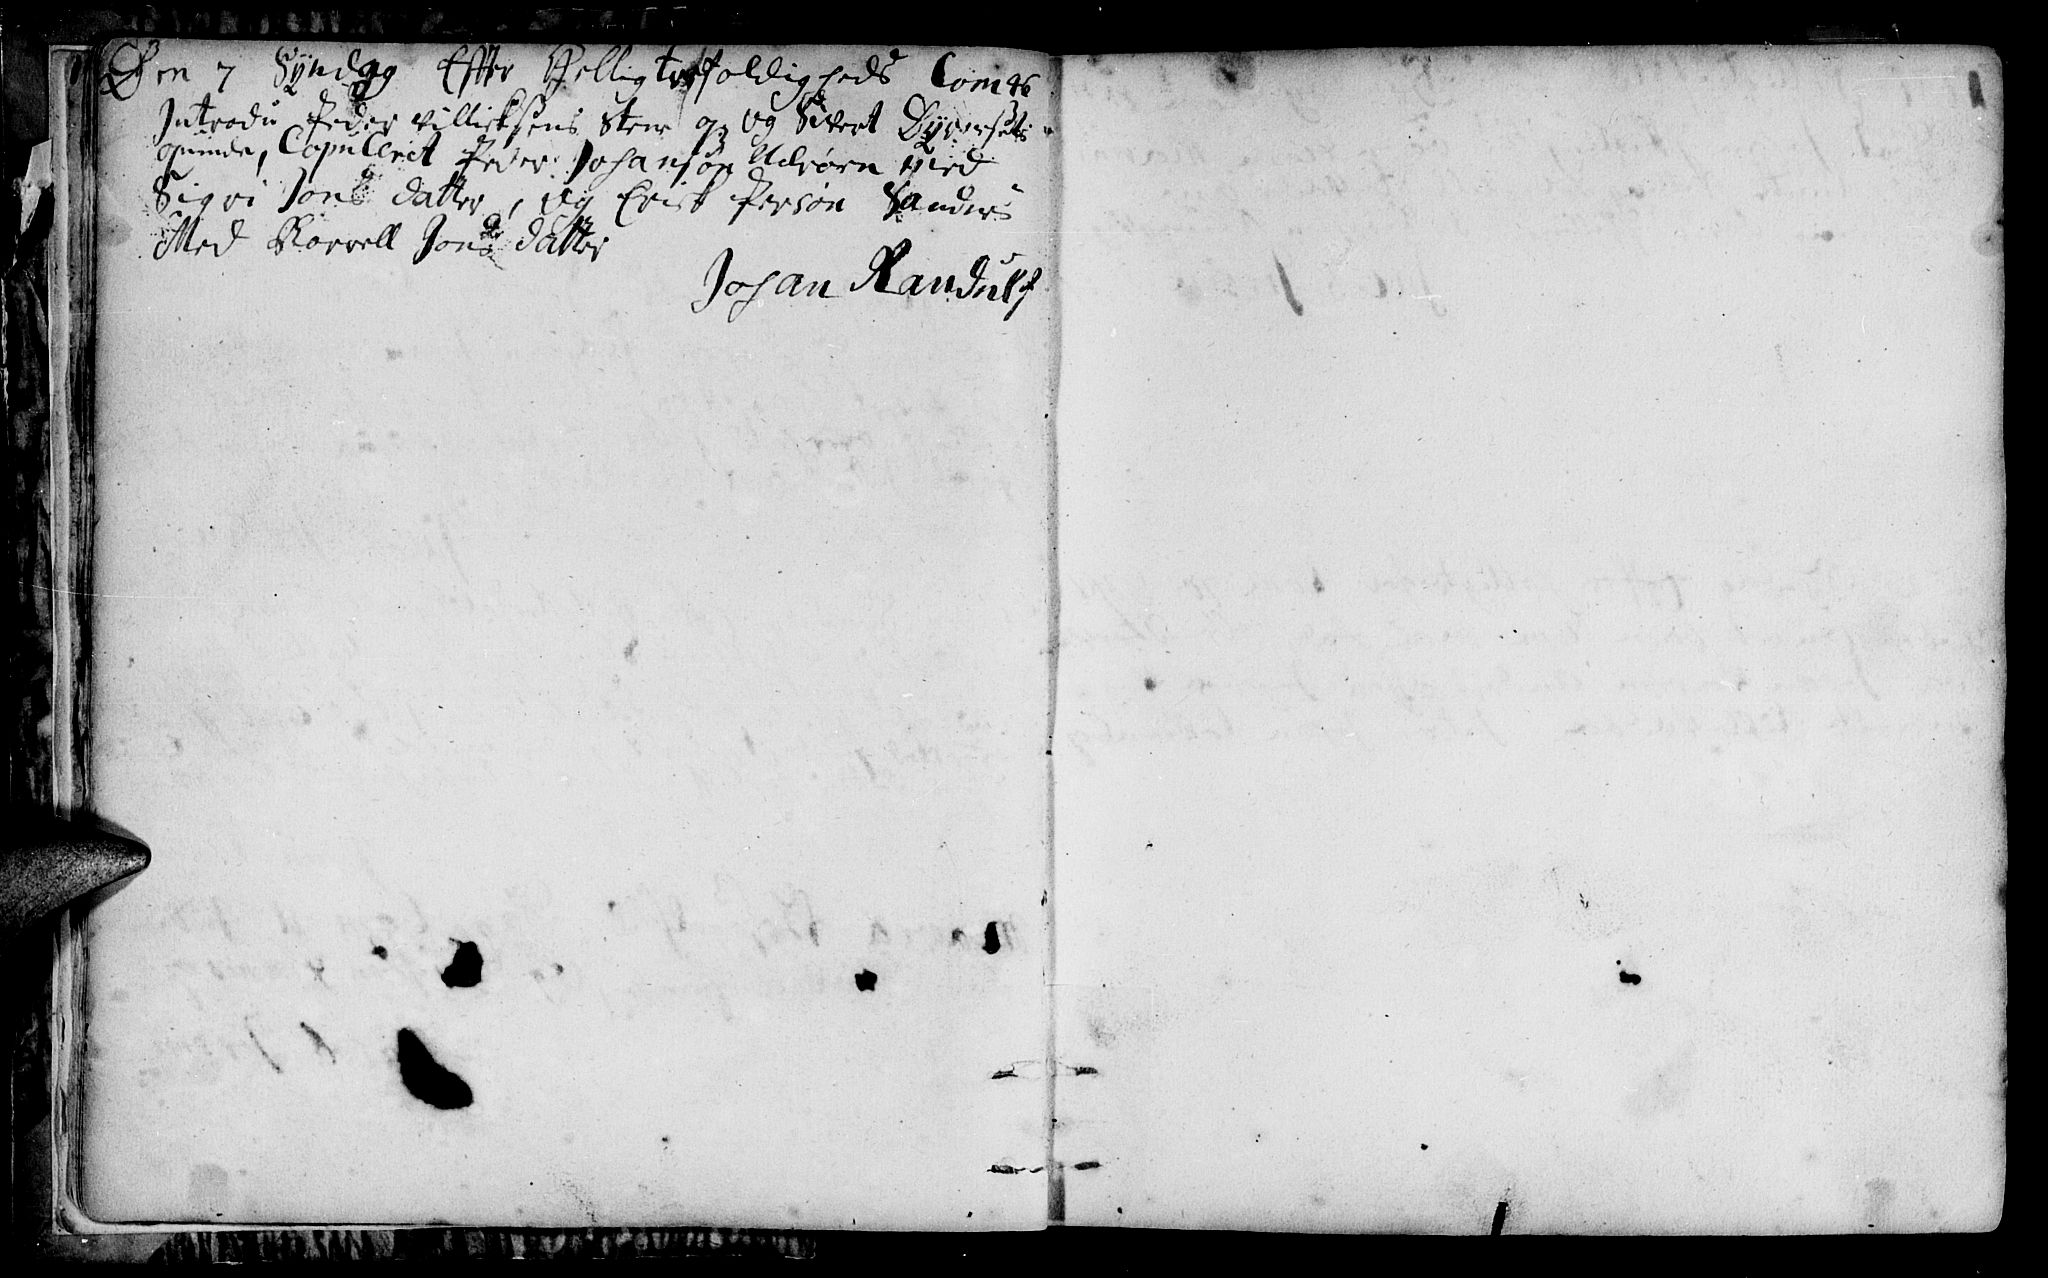 Den 7 Syndag Effter Hellig trefoldigheds Com 46
Introdu Peder villicksens Stene og Sivert Dyrersets
qvinde, Copuleret Peder Johansøn Udrøen Med
Sigri Jons datter, og Erick Persøn Sanders
Med Karrell Jons datter
Johan Randulf